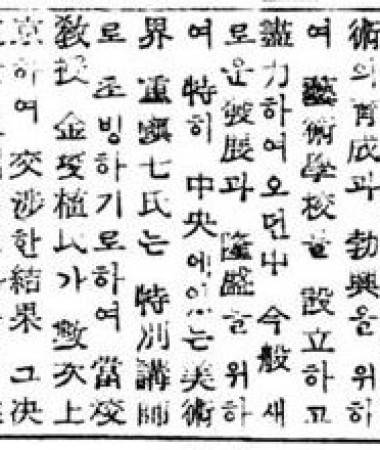 術의 育成과 勃興을 위하
여 藝術學校를 設立하고
盡力하여오던中 今般 새
로운發展과 隆盛을 위하
여 特히 中央에있는 美術
界 重鎭七氏는 特別講師
로 초빙하기로하여 當校
敎授 數次上
京하여 交涉한結果 그決